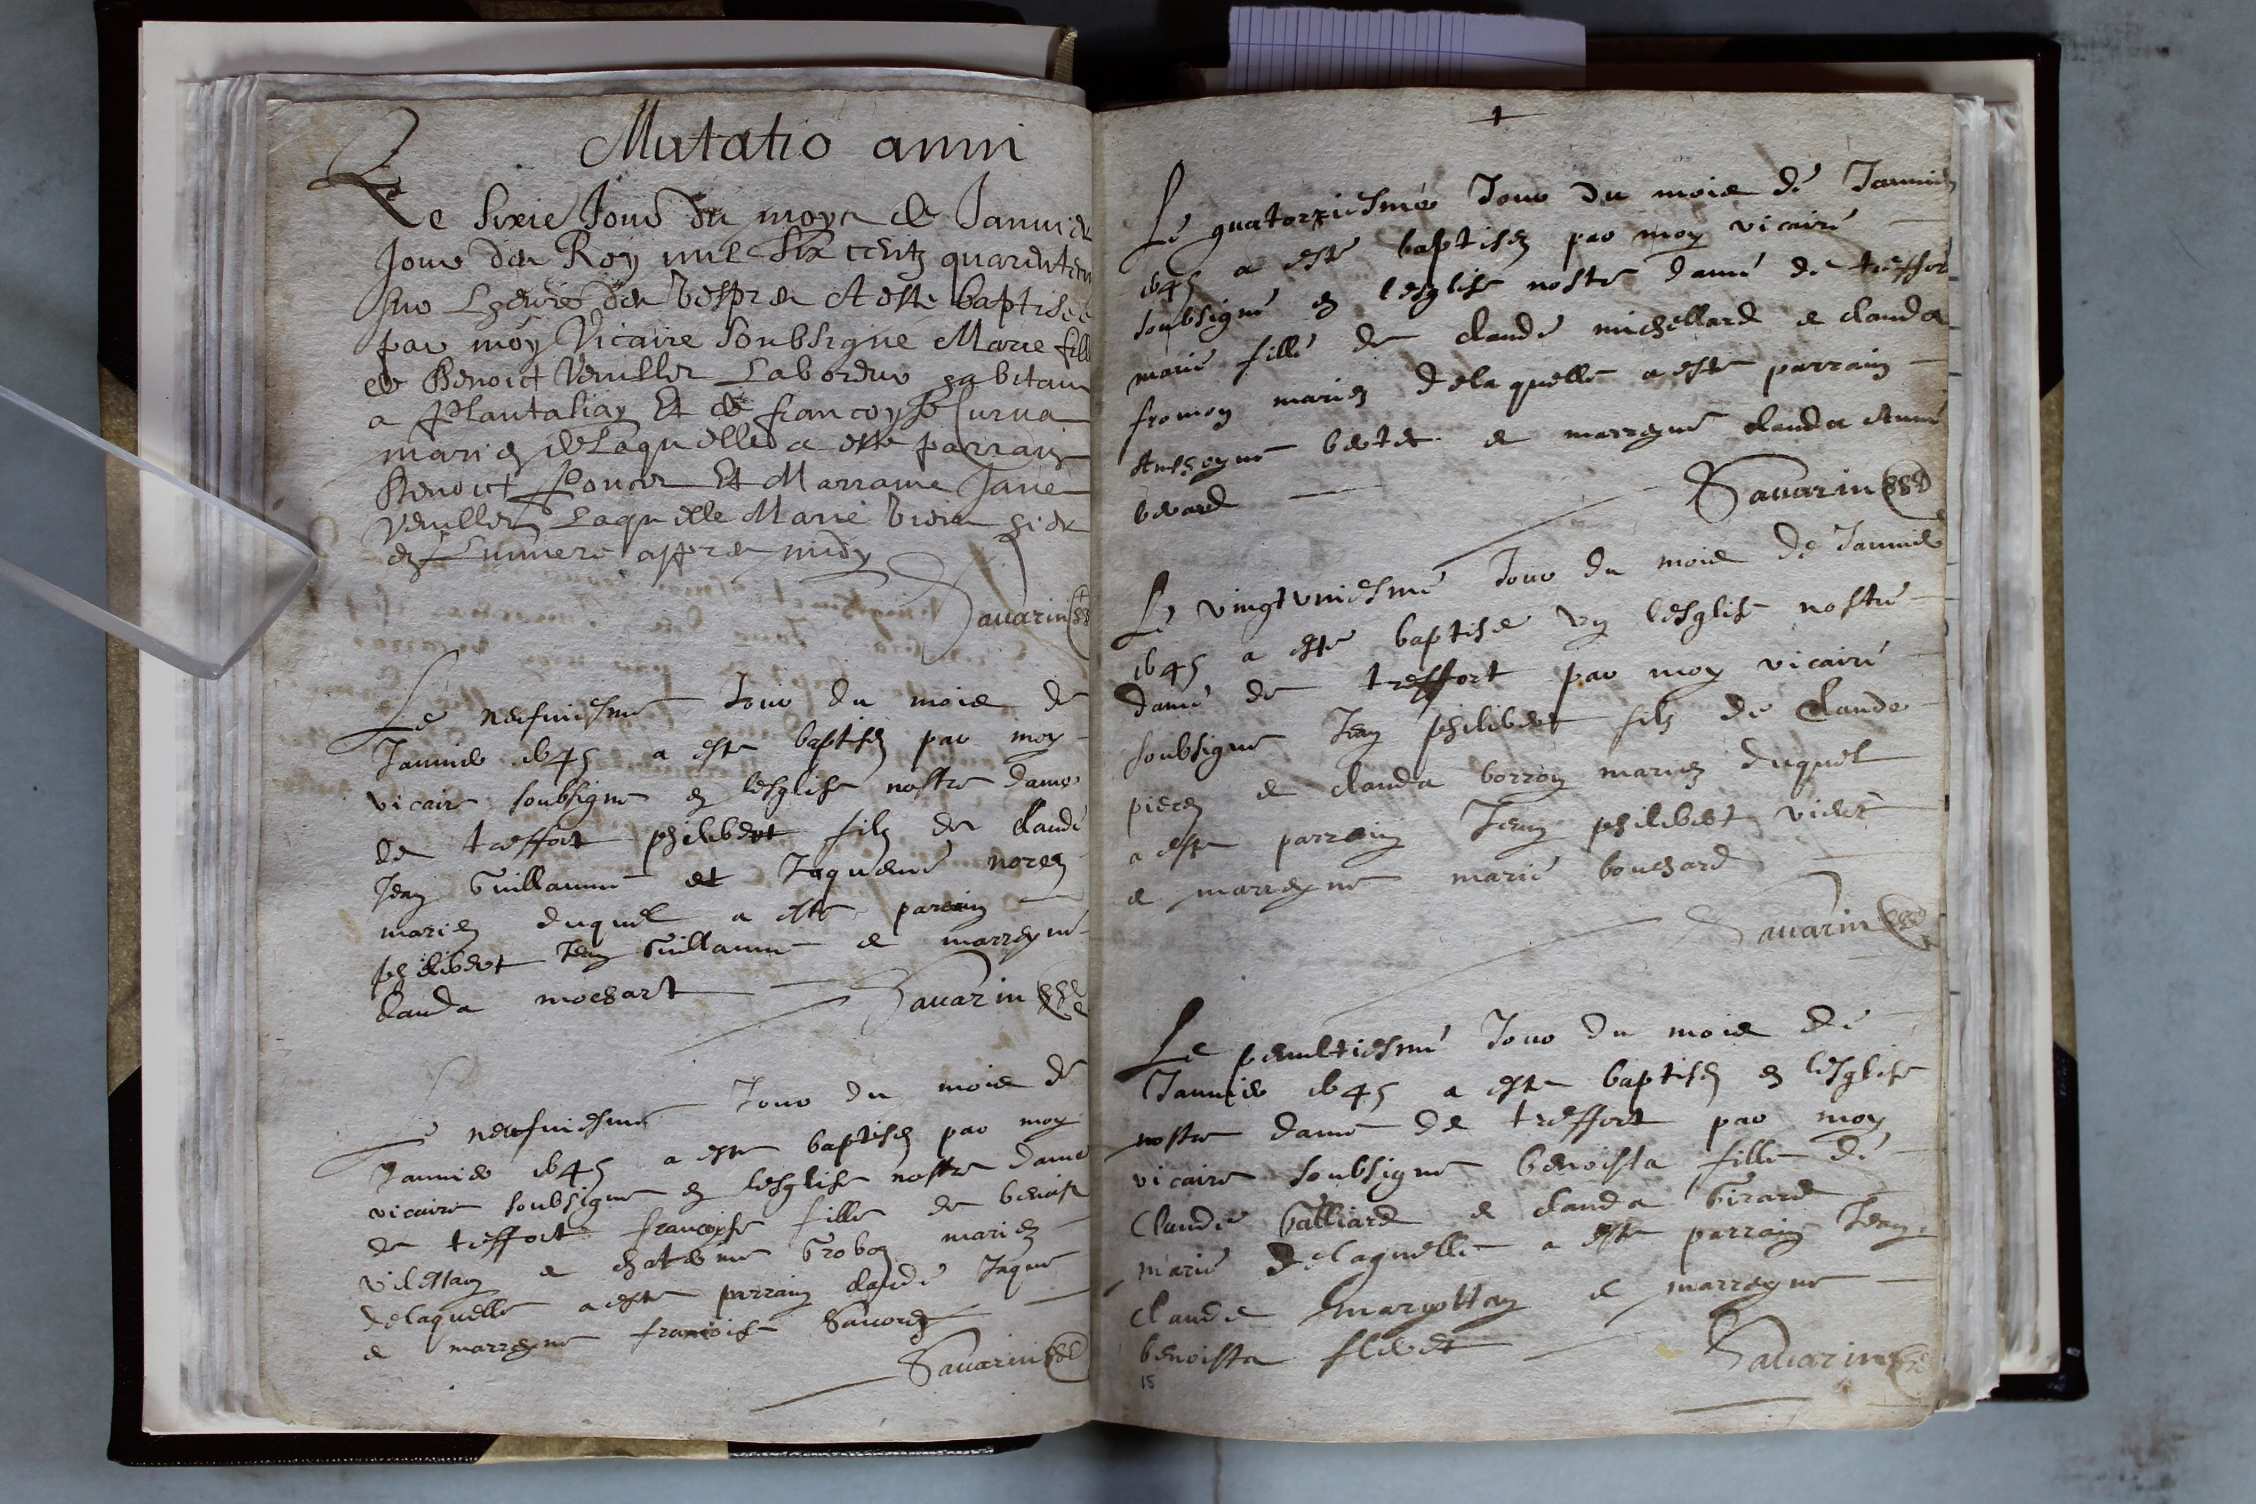 Mutatio anni
Le sixie Jour du moys de Januier
Jour des Roy mil six centz quarante
sur heures des vespres A este baptisee
par moy Vicaire soubsigne Marie fille
de Benoict Veuiller Laboreur habitant
a Plantaliay Et de francoyse Curna
mariez de Laquelle a este parrain
Benoict Poncet Et Marraine Jane
Veuiller Laquelle Marie hier
en Lumiere appres midy
Sauarin
Le neufuiesme Jour du mois de
Januier 1645 a este baptise par moy
vicaire soubsigne en lesglise nostre dame
de treffort philibert filz de claude
Jean Guillaume et Jaqueme norez
mariez duquel a este parrain
philibert Jean Guillaume et marreyne
clauda mochart Sauarin
Le neufuiesme Jour du mois de
Januier 1645 a este baptisez par moy
vicaire soubsigne en lesglise nostre dame
de treffort francoyse fille de benoist
vilettan et chaterine Grobon mariez
delaquelle a este parrain claude Jaque
et marreyne francoise Sauorez
Sauarin
Le quatorziesme Jour du mois de Januier
1645 a este baptisez par moy vicaire
soubsigne en lesglise nostre dame de treffort
marie fille de claude michellard et clauda
fromon mariez delaquelle a este parrain
Anthoyne bertet et marreyne clauda Anne
berard
Sauarin
Le vingtvniesme Jour du mois de Januier
1645 a este baptise en lesglise nostre
dame de treffort par moy vicaire
soubsigne Jean philibert filz de claude
pierez et clauda borron mariez duquel
a este parrain Jean philibert viert
et marreyne marie bouchard
Sauarin
Le penultiesme Jour du mois de
Januier 1645 a este baptisez en lesglise
nostre dame de treffort par moy
vicaire soubsigne benoista fille de
Claude Galliard et clauda Girard
marie delaquelle a este parrain Jean
claude margottan et marreyne
benoista
Sauarin
15